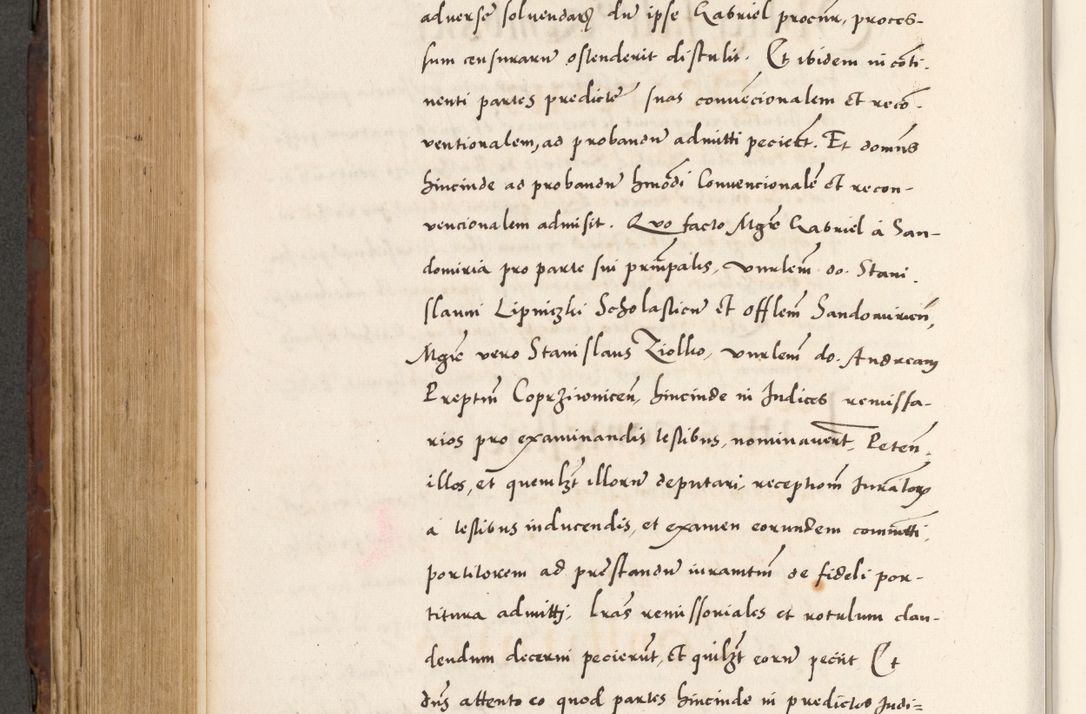 adverse solvendarꝝ dn̄ ipse Gabriel procūr, proces-
sum censurarū ostenderit distulit. Et ibidem in cōti-
nenti partes predictę suas convēcionalem et recō-
ventionalem, ad probandū admitti pecierūt. Et domn̄s
hincinde ad probandū hmōdi Convencionalē et recon-
vencionalem admisit. Quo facto Mgr̄ Gabriel à San-
domiria pro parte sui prīncipalis, vnrlem̄ do. Stani-
slaum Lipniczki Scholasticū et offlem̄ Sandomirien̄,
Mgr̄ vero Stanislaus Ziolko, vnrlem̄ do. Andream
Preptm̄ Coprziwnicen̄, hincinde in Iudices remissa-
rios pro examinandis testibus, nominaverūt. Peten̄
illos, et quemlꝫt illorū deputari, receptiom̄ Iurām̄torꝝ
a testibus inducendis, et examen eorundem com̄itti,
portitorem ad prestandū iuramtm̄ de fideli por-
titura admitti, Lrās remissoriales et rotulum clau-
dendum decerni pecierūt, et quilꝫt eorū peciit Et
dn̄s attento eo quod partes hincinde in predictos Iudi=